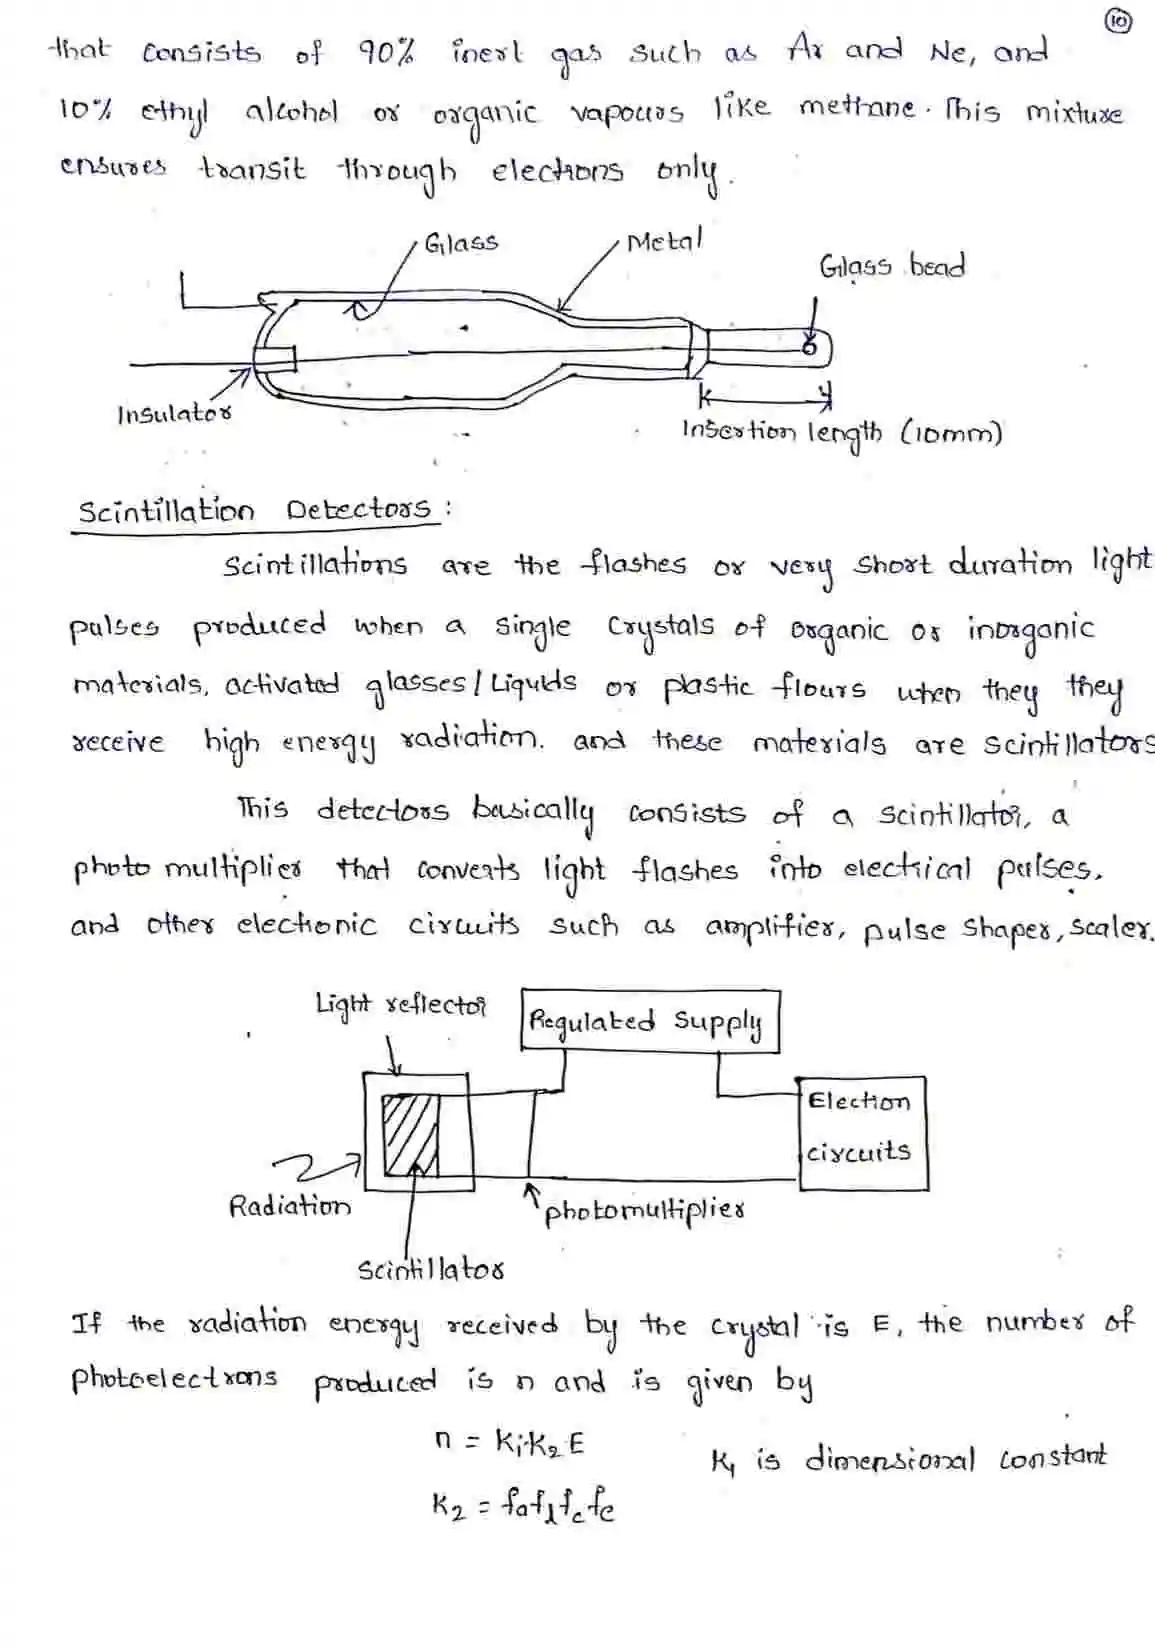 10
that consists of 90% inert gas such as Ar and Ne, and
10% ethyl alcohol or organic vapours like methane. This mixture
ensures transit through electrons only.
Glass
Metal
Glass bead
Insulator
Insertion length (10mm)
Scintillation Detectors :
Scintillations are the flashes or very short duration light
pulses produced when a single Crystals of organic or inorganic
materials, activated glasses/Liquids or plastic flours when they they
receive high energy radiation. and these materials are scintillators
This detectors basically consists of a scintillator, a
photo multiplier that converts light flashes into electrical pulses,
and other electronic circuits such as amplifier, pulse shaper, scaler.
Light reflector
Regulated Supply
Election
circuits
Radiation
photomultiplier
Scintillator
If the radiation energy received by the crystal is E, the number of
photoelectrons produced is n and is given by
n = K₁·K₂ E
K₁ is dimensional constant
K₂ = fₐfₗf꜀fₑ